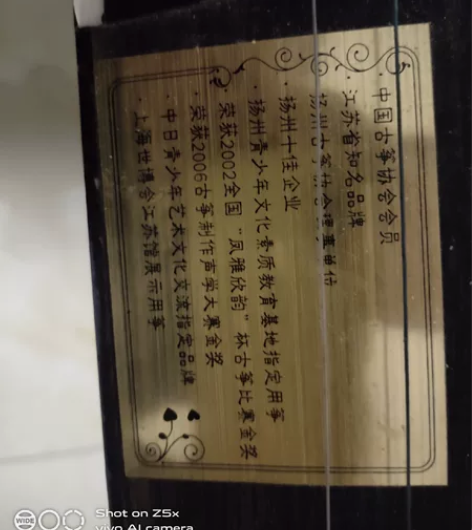 ·中国古筝协会会员
·江苏省知名品牌
扬州古筝协会理事单位
·扬州十佳企业
·扬州青少年文化素质教育基地指定用筝
·荣获2002全国“风雅欣韵”杯古筝比赛金奖
·荣获2006古筝制作声学大赛金奖
·中日青少年艺术文化交流指定品牌
·上海世博会江苏馆展示用筝
WIDE
Shot on Z5x
vivo AI camera